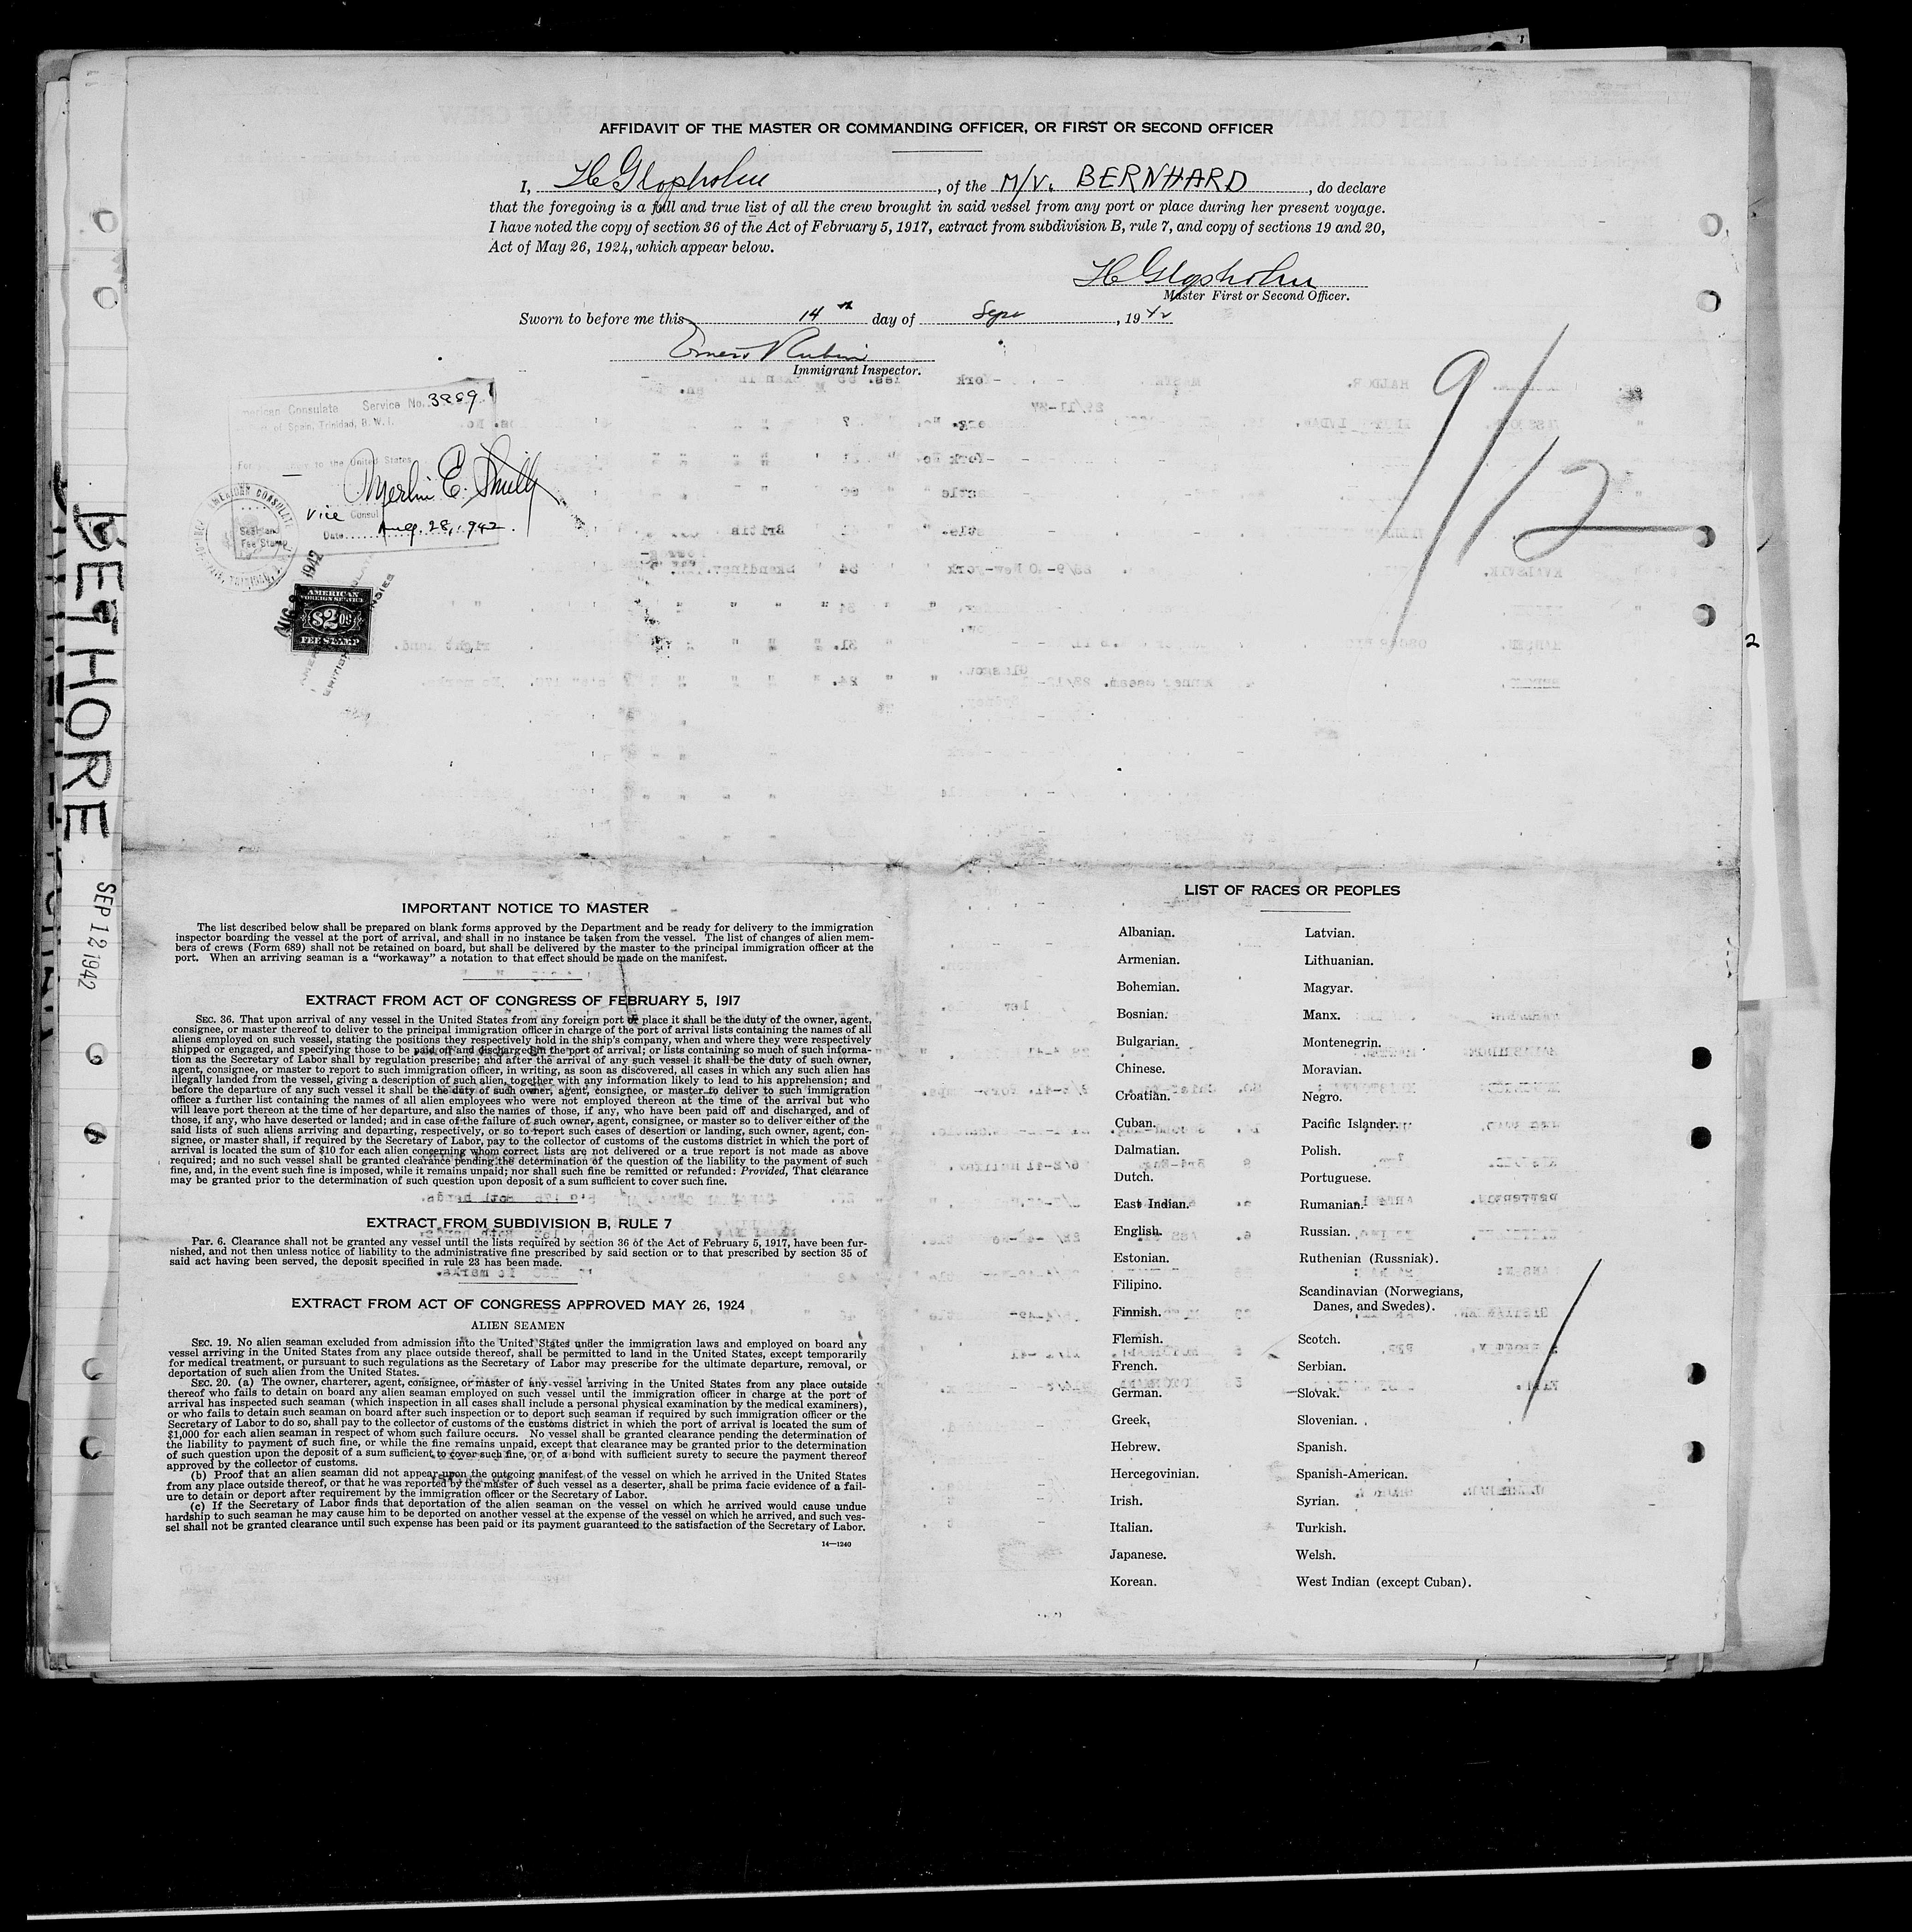 AFFIDAVIT OF THE MASTER OR COMMANDING OFFICER, OR FIRST OR SECOND OFFICER
I, , of the M/V. BERNHARD , do declare
that the foregoing is a full and true list of all the crew brought in said vessel from any port or place during her present voyage.
I have noted the copy of section 36 of the Act of February 5, 1917, extract from subdivision B, rule 7, and copy of sections 19 and 20,
Act of May 26, 1924, which appear below.
Master First or Second Officer.
Sworn to before me this 14th day of Sept , 1942
Immigrant Inspector.
9/12
American Consulate Service No. 3889
Port of Spain, Trinidad, B.W.I.
For to the United States
Merlin E. Smith
Vice Consul
Date Aug. 28, 1942.
AMERICAN CONSULATE
Seal and
Fee Stamp
1942
AMERICAN
FOREIGN SERVICE
$2.00
FEE STAMP
BETHORE
SEP 12 1942
2
IMPORTANT NOTICE TO MASTER
The list described below shall be prepared on blank forms approved by the Department and be ready for delivery to the immigration
inspector boarding the vessel at the port of arrival, and shall in no instance be taken from the vessel. The list of changes of alien mem-
bers of crews (Form 689) shall not be retained on board, but shall be delivered by the master to the principal immigration officer at the
port. When an arriving seaman is a "workaway" a notation to that effect should be made on the manifest.
EXTRACT FROM ACT OF CONGRESS OF FEBRUARY 5, 1917
SEC. 36. That upon arrival of any vessel in the United States from any foreign port or place it shall be the duty of the owner, agent,
consignee, or master thereof to deliver to the principal immigration officer in charge of the port of arrival lists containing the names of all
aliens employed on such vessel, stating the positions they respectively hold in the ship's company, when and where they were respectively
shipped or engaged, and specifying those to be paid off and discharged in the port of arrival; or lists containing so much of such informa-
tion as the Secretary of Labor shall by regulation prescribe; and after the arrival of any such vessel it shall be the duty of such owner,
agent, consignee, or master to report to such immigration officer, in writing, as soon as discovered, all cases in which any such alien has
illegally landed from the vessel, giving a description of such alien, together with any information likely to lead to his apprehension; and
before the departure of any such vessel it shall be the duty of such owner, agent, consignee, or master to deliver to such immigration
officer a further list containing the names of all alien employees who were not employed thereon at the time of the arrival but who
will leave port thereon at the time of her departure, and also the names of those, if any, who have been paid off and discharged, and of
those, if any, who have deserted or landed; and in case of the failure of such owner, agent, consignee, or master so to deliver either of the
said lists of such aliens arriving and departing, respectively, or so to report such cases of desertion or landing, such owner, agent, con-
signee, or master shall, if required by the Secretary of Labor, pay to the collector of customs of the customs district in which the port of
arrival is located the sum of $10 for each alien concerning whom correct lists are not delivered or a true report is not made as above
required; and no such vessel shall be granted clearance pending the determination of the question of the liability to the payment of such
fine, and, in the event such fine is imposed, while it remains unpaid; nor shall such fine be remitted or refunded: Provided, That clearance
may be granted prior to the determination of such question upon deposit of a sum sufficient to cover such fine.
EXTRACT FROM SUBDIVISION B, RULE 7
Par. 6. Clearance shall not be granted any vessel until the lists required by section 36 of the Act of February 5, 1917, have been fur-
nished, and not then unless notice of liability to the administrative fine prescribed by said section or to that prescribed by section 35 of
said act having been served, the deposit specified in rule 23 has been made.
EXTRACT FROM ACT OF CONGRESS APPROVED MAY 26, 1924
ALIEN SEAMEN
SEC. 19. No alien seaman excluded from admission into the United States under the immigration laws and employed on board any
vessel arriving in the United States from any place outside thereof, shall be permitted to land in the United States, except temporarily
for medical treatment, or pursuant to such regulations as the Secretary of Labor may prescribe for the ultimate departure, removal, or
deportation of such alien from the United States.
SEC. 20. (a) The owner, charterer, agent, consignee, or master of any vessel arriving in the United States from any place outside
thereof who fails to detain on board any alien seaman employed on such vessel until the immigration officer in charge at the port of
arrival has inspected such seaman (which inspection in all cases shall include a personal physical examination by the medical examiners),
or who fails to detain such seaman on board after such inspection or to deport such seaman if required by such immigration officer or the
Secretary of Labor to do so, shall pay to the collector of customs of the customs district in which the port of arrival is located the sum of
$1,000 for each alien seaman in respect of whom such failure occurs. No vessel shall be granted clearance pending the determination of
the liability to payment of such fine, or while the fine remains unpaid, except that clearance may be granted prior to the determination
of such question upon the deposit of a sum sufficient to cover such fine, or of a bond with sufficient surety to secure the payment thereof
approved by the collector of customs.
(b) Proof that an alien seaman did not appear upon the outgoing manifest of the vessel on which he arrived in the United States
from any place outside thereof, or that he was reported by the master of such vessel as a deserter, shall be prima facie evidence of a fail-
ure to detain or deport after requirement by the immigration officer or the Secretary of Labor.
(c) If the Secretary of Labor finds that deportation of the alien seaman on the vessel on which he arrived would cause undue
hardship to such seaman he may cause him to be deported on another vessel at the expense of the vessel on which he arrived, and such ves-
sel shall not be granted clearance until such expense has been paid or its payment guaranteed to the satisfaction of the Secretary of Labor.
14—1240
LIST OF RACES OR PEOPLES
Albanian.
Armenian.
Bohemian.
Bosnian.
Bulgarian.
Chinese.
Croatian.
Cuban.
Dalmatian.
Dutch.
East Indian.
English.
Estonian.
Filipino.
Finnish.
Flemish.
French.
German.
Greek.
Hebrew.
Hercegovinian.
Irish.
Italian.
Japanese.
Korean.
Latvian.
Lithuanian.
Magyar.
Manx.
Montenegrin.
Moravian.
Negro.
Pacific Islander.
Polish.
Portuguese.
Rumanian.
Russian.
Ruthenian (Russniak).
Scandinavian (Norwegians,
Danes, and Swedes).
Scotch.
Serbian.
Slovak.
Slovenian.
Spanish.
Spanish-American.
Syrian.
Turkish.
Welsh.
West Indian (except Cuban).